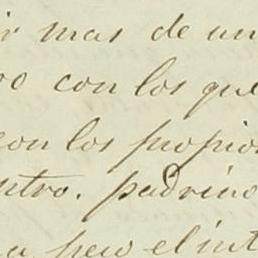 ir mas de un
ro con los que
con los propio
ntro. padrino
a pero el int